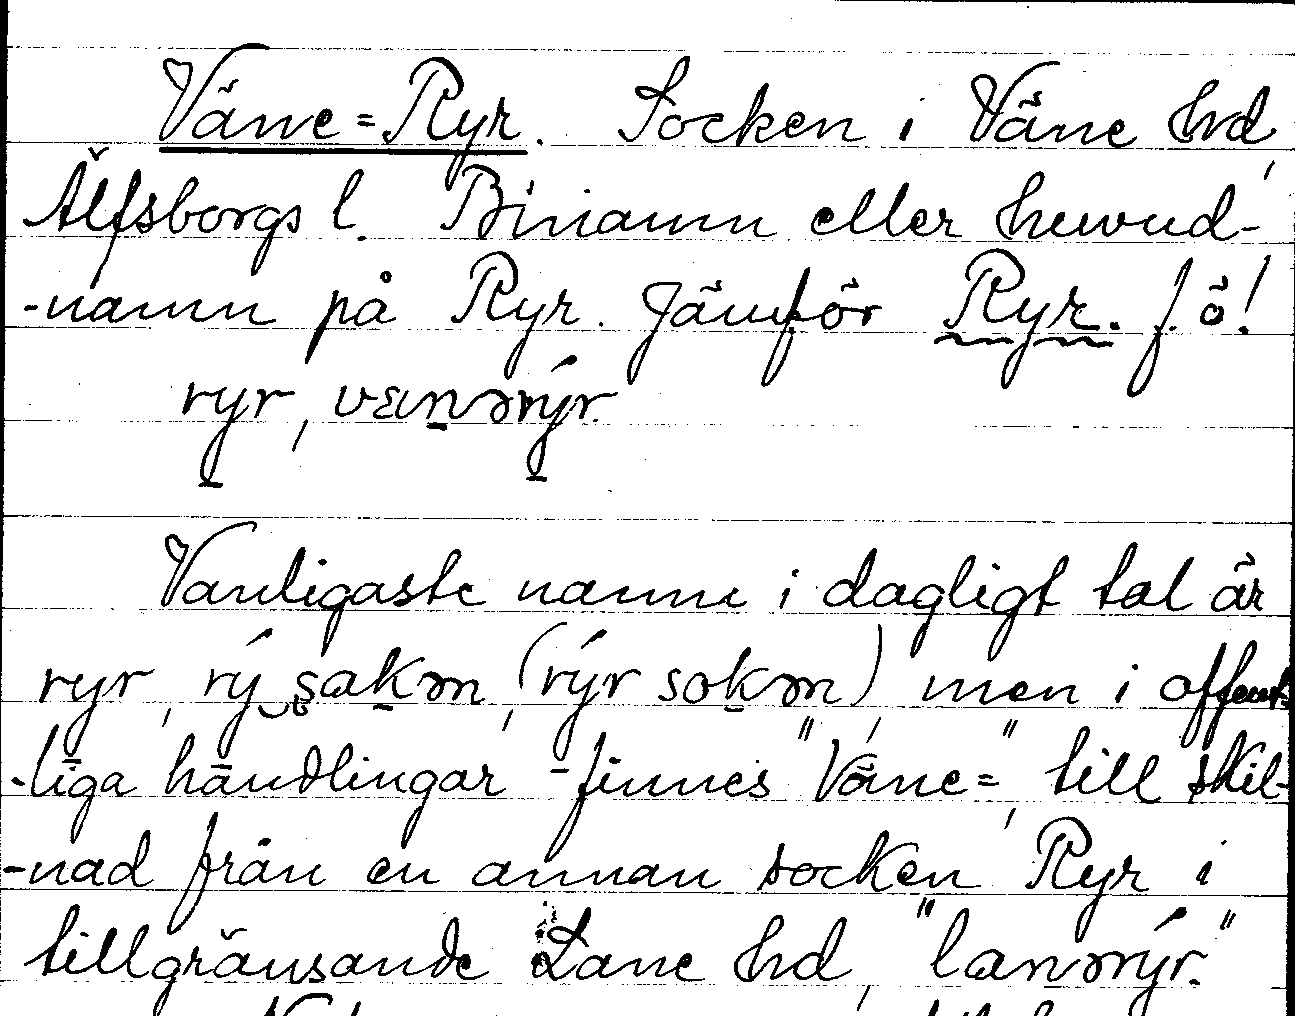 Väne=Ryr. Socken i Väne hd,
Älfsborgs l. Binamn eller huvud-
-namn på Ryr. Jämför Ryr. f. ö!
ryr, vænərýr.
Vanligaste namn i dagligt tal är
ryr, rý sakən, (rýr sokən), men i offent-
-liga handlingar finnes "Väne=", till skil-
-nad från en annan socken Ryr i
tillgränsande Lane hd, "lanərýr."